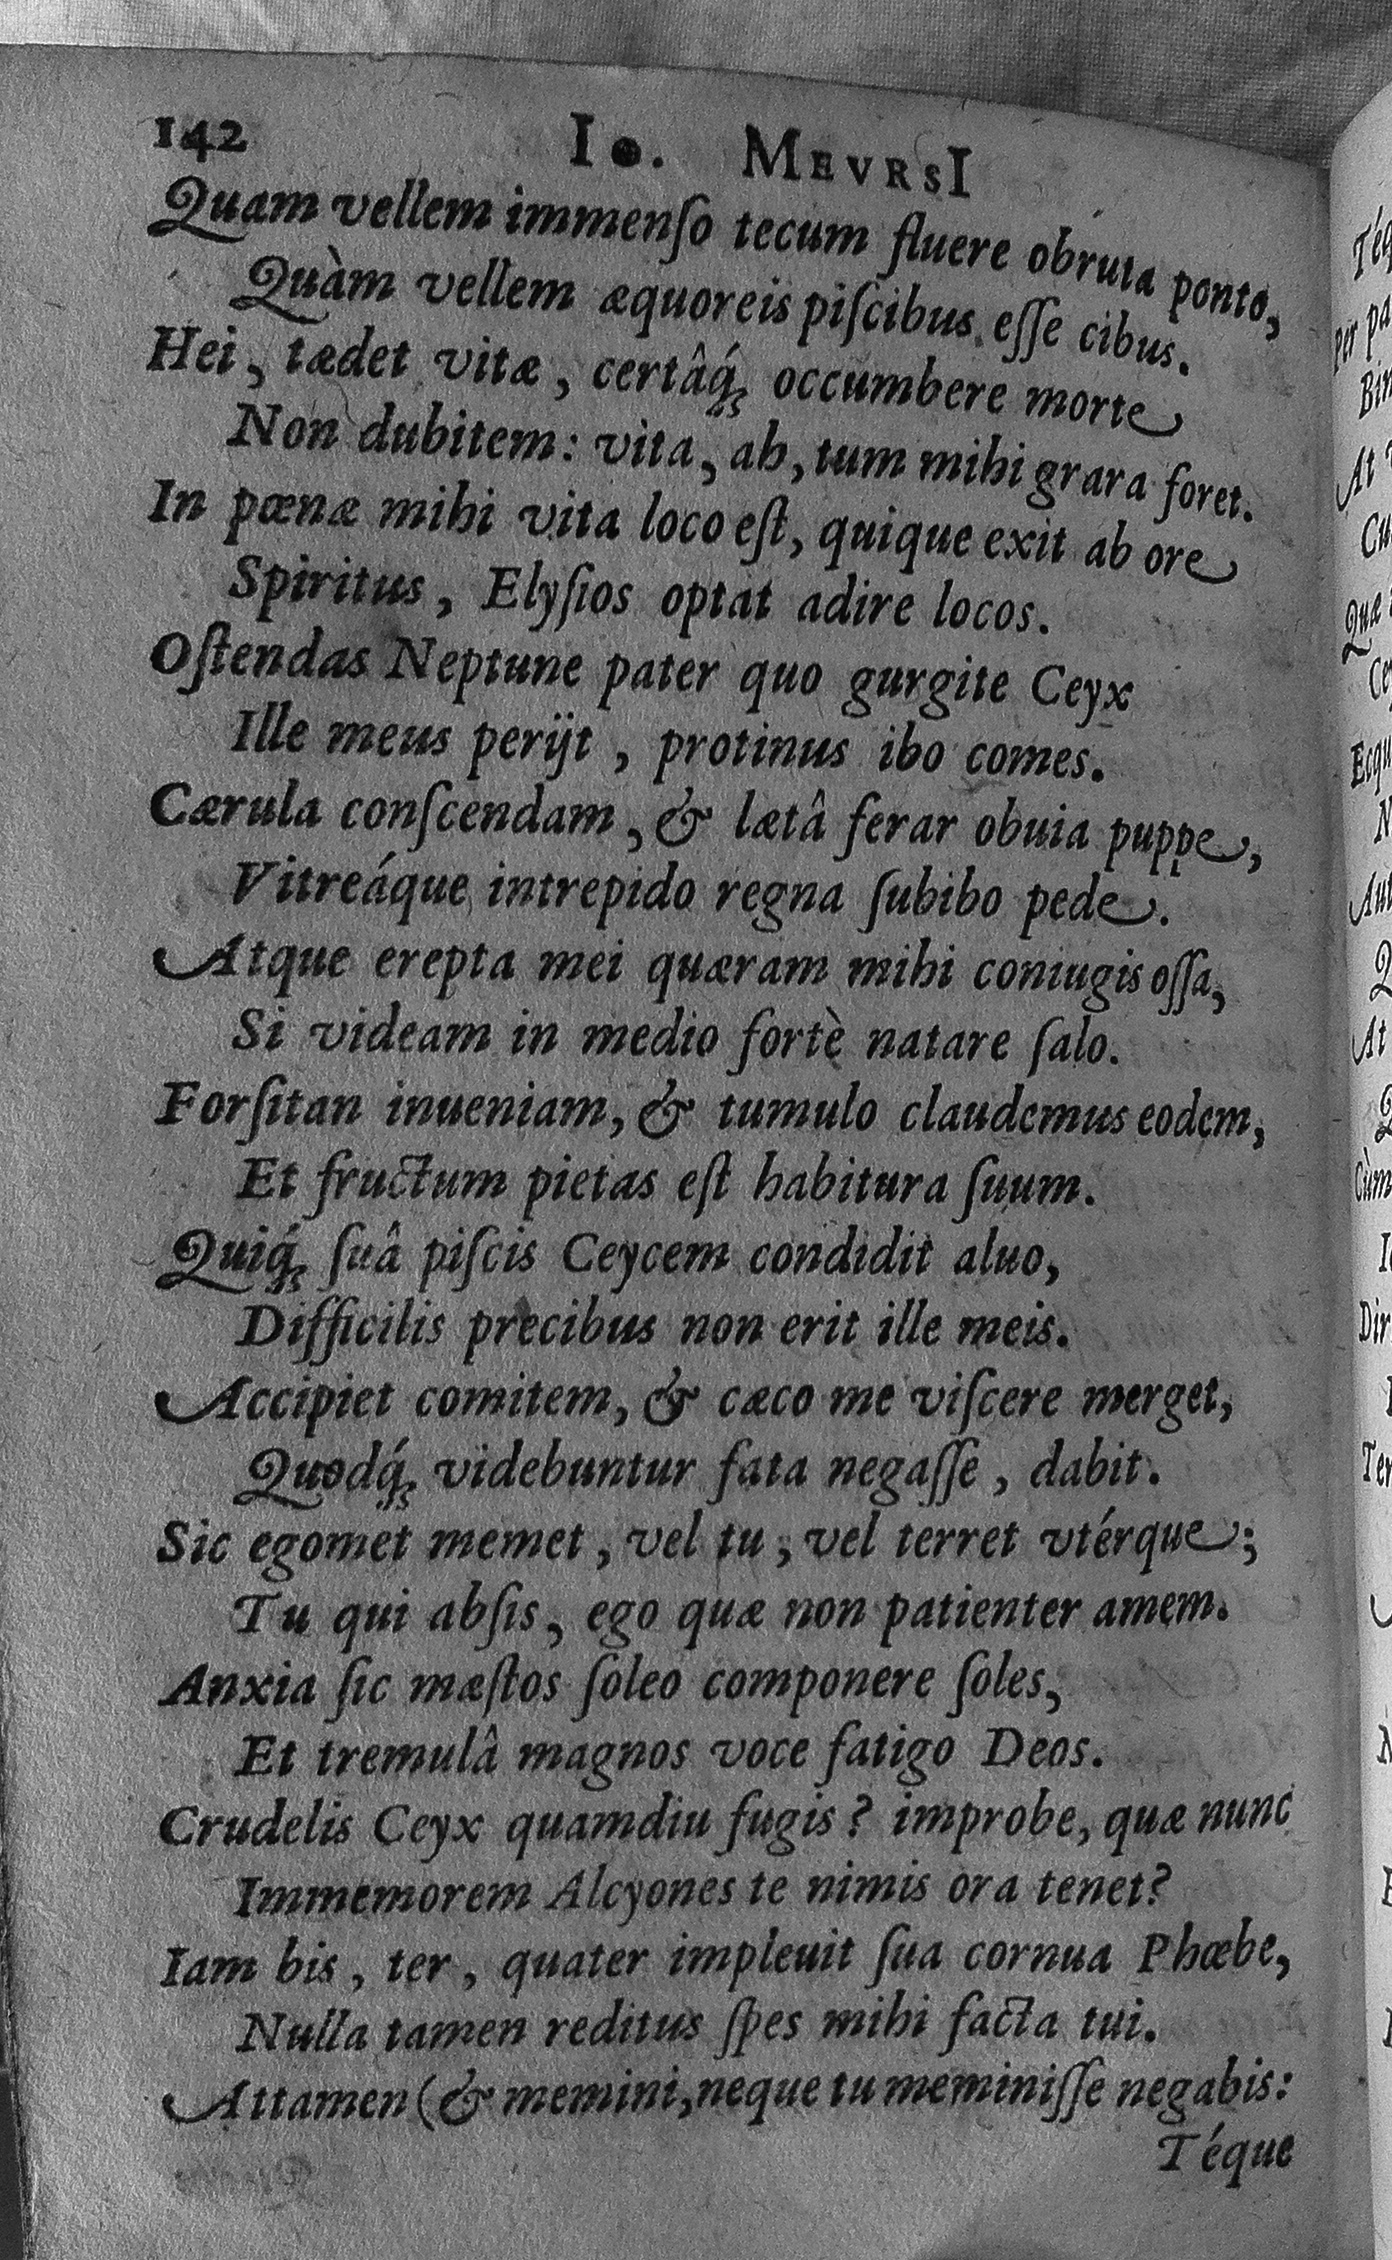 142 Io. MEVRSI
Quam vellem immenſo tecum fluere obruta ponto,
Quàm vellem æquoreis piſcibus eſſe cibus.
Hei, tædet vitæ, certâq́ꝫ occumbere morte
Non dubitem: vita, ah, tum mihi grara foret.
In pœnæ mihi vita loco eſt, quique exit ab ore
Spiritus, Elyſios optat adire locos.
Oſtendas Neptune pater quo gurgite Ceyx
Ille meus perijt, protinus ibo comes.
Cærula conſcendam, & lætâ ferar obuia puppe,
Vitreáque intrepido regna ſubibo pede.
Atque erepta mei quæram mihi coniugis oſſa,
Si videam in medio fortè natare ſalo.
Forſitan inueniam, & tumulo claudemus eodem,
Et fructum pietas eſt habitura ſuum.
Quiq́ꝫ ſuâ piſcis Ceycem condidit aluo,
Difficilis precibus non erit ille meis.
Accipiet comitem, & cæco me viſcere merget,
Quodq́ꝫ videbuntur fata negaſſe, dabit.
Sic egomet memet, vel tu, vel terret vtérque;
Tu qui abſis, ego quæ non patienter amem.
Anxia ſic mæſtos ſoleo componere ſoles,
Et tremulâ magnos voce fatigo Deos.
Crudelis Ceyx quamdiu fugis? improbe, quæ nunc
Immemorem Alcyones te nimis ora tenet?
Iam bis, ter, quater impleuit ſua cornua Phœbe,
Nulla tamen reditus ſpes mihi facta tui.
Attamen (& memini, neque tu meminiſſe negabis:
Téque